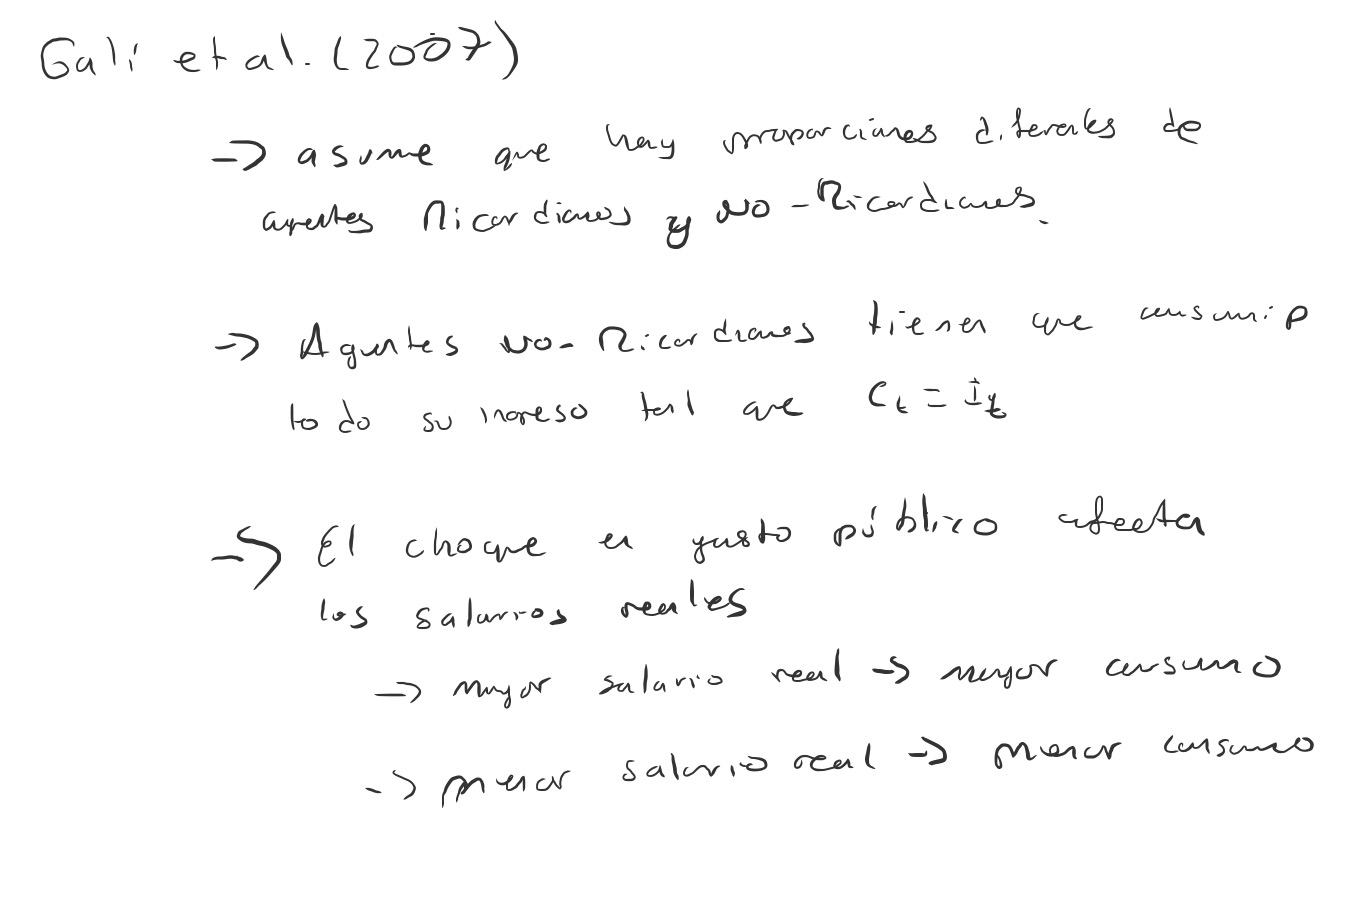 Galí et al. (2007)
→ asume que hay proporciones diferentes de
agentes Ricardianos y No-Ricardianos.
→ Agentes No-Ricardianos tienen que consumir
todo su ingreso tal que Ct = It
→ El choque en gasto público afecta
los salarios reales
→ mayor salario real → mayor consumo
→ menor salario real → menor consumo